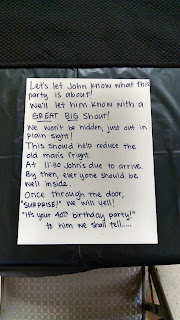 Let's let John know what this
party is about!
We'll let him know with a
GREAT BIG Shout!
We won't be hidden, just out in
plain sight!
This should help reduce the
old man's fright.
At 11:30 John's due to arrive.
By then, everyone should be
well inside.
Once through the door,
"SURPRISE!" we will yell!
"It's your 40th birthday party!"
to him we shall tell.....